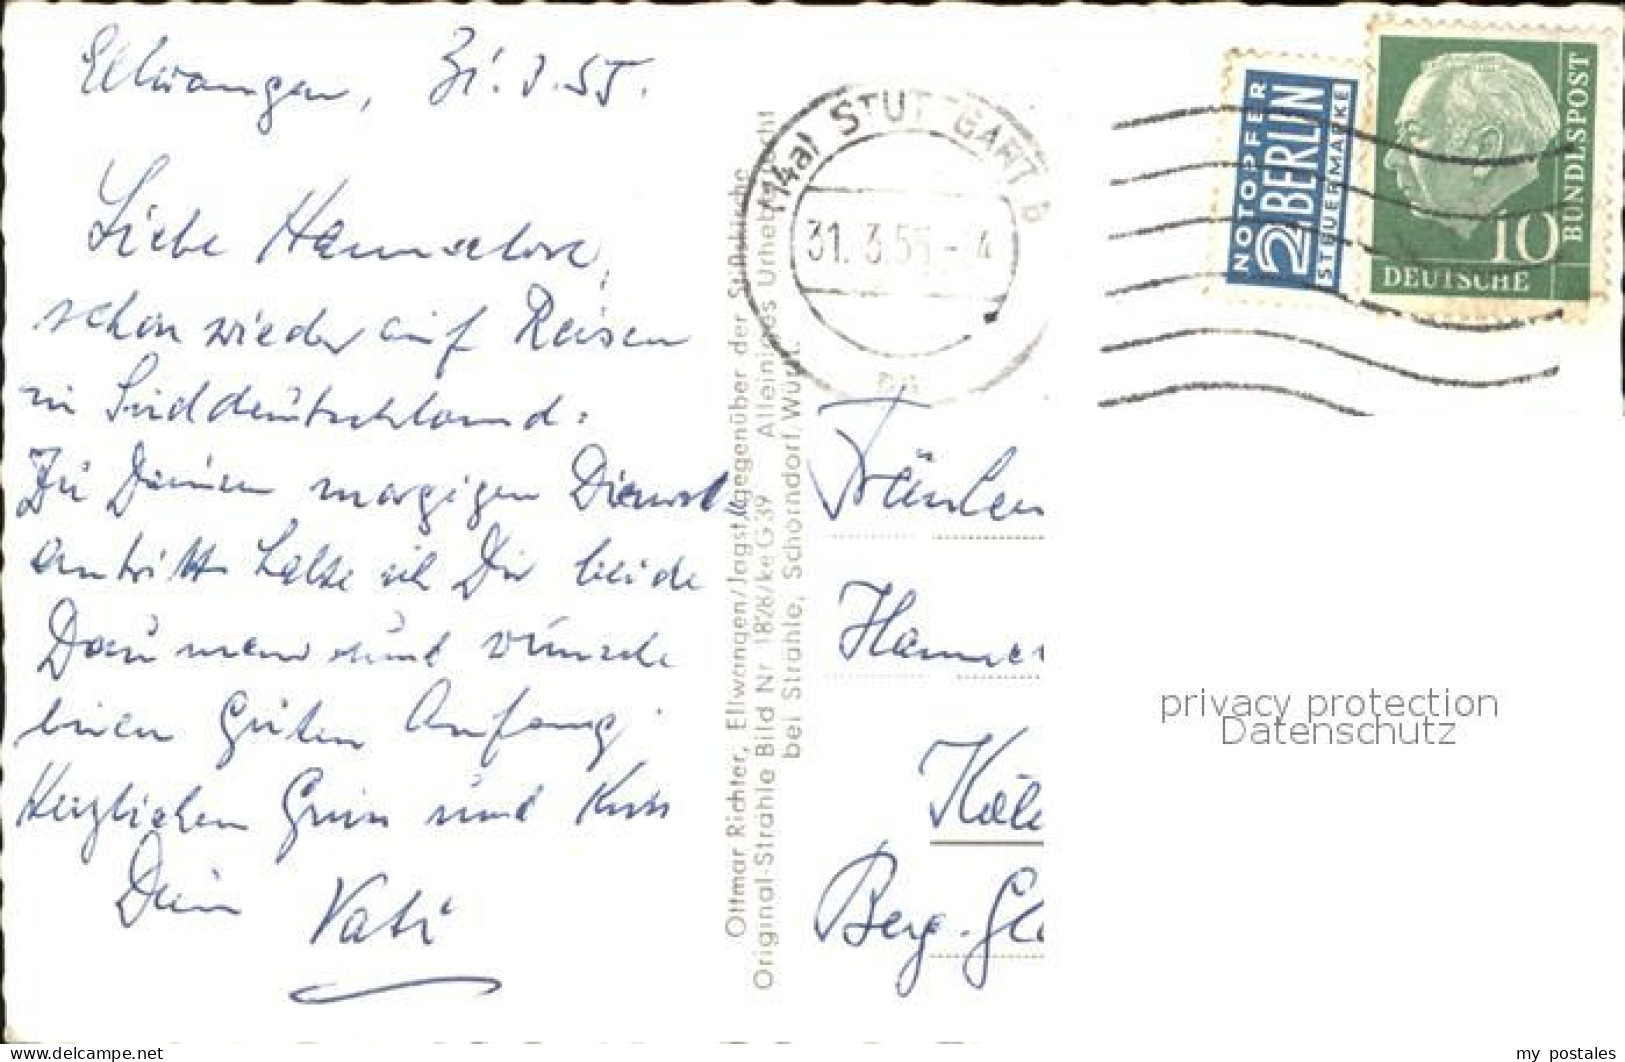 Ellwangen, 31.3.55.
Liebe Hannelore,
schon wieder auf Reisen
in Süddeutschland.
Zu Deinem morgigen Dienst-
antritt halte ich Dir beide
Daumen und wünsche
einen guten Anfang.
Herzlichen Gruss und Kuss
Dein Vati
Ottmar Richter, Ellwangen/Jagst, gegenüber der
Original-Strähle Bild Nr 1828/ke G 39 Alleiniges Urheberrecht
bei Strähle, Schorndorf/Württ.
(14a) STUTTGART
31. 3.55.-
NOTOPFER
2 BERLIN
STEUERMARKE
10
DEUTSCHE
BUNDESPOST
Fräulein
Hanne
Köln
Berg. Gl
privacy protection
Datenschutz
my postales
www.delcampe.net